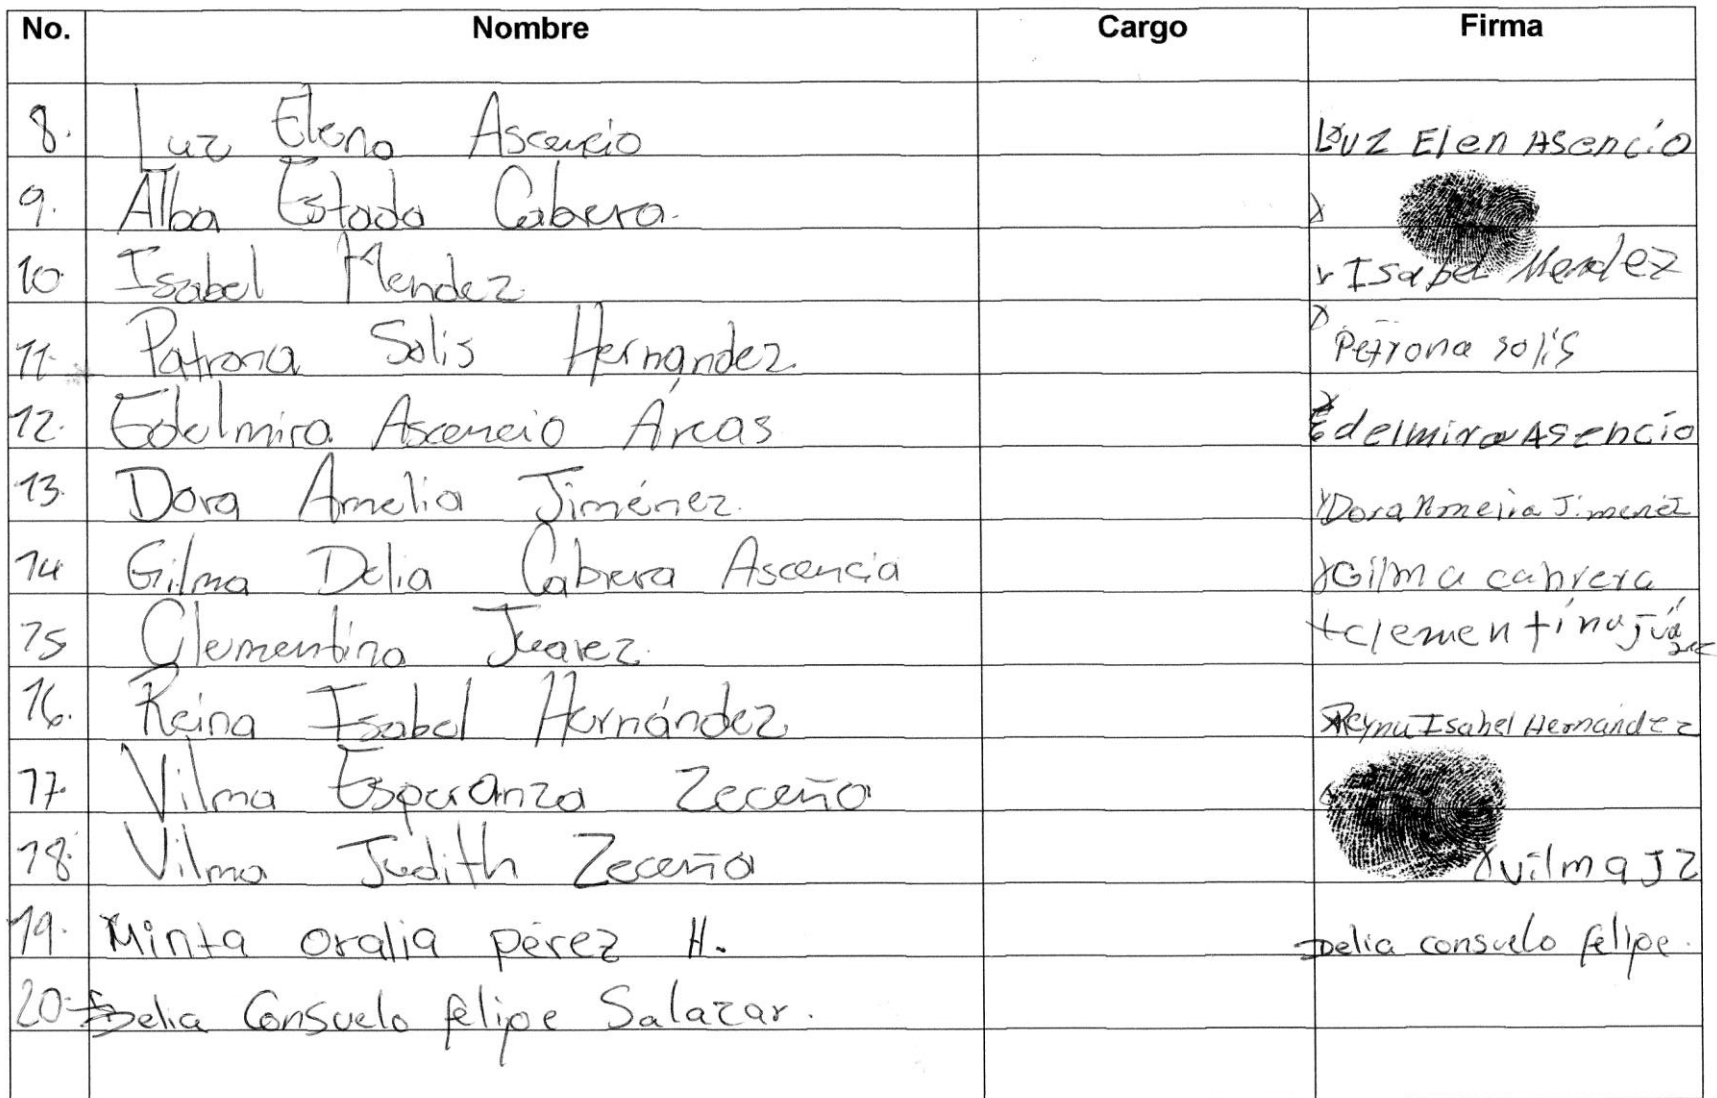 No. Nombre Cargo Firma
8. Luz Elena Ascencio Luz Elen Asencio
9. Alba Estada Cabrera. x
10 Isabel Mendez x Isabel Mendez
11. Patrona Solis Hernández. x Petrona solis
12. Edelmira Ascencio Arcas x Edelmira Asencio
13. Dora Amelia Jiménez. x Dora Ameiia Jimenez
14 Gilma Delia Cabrera Ascencia x Gilma cabrera
15 Clementina Juarez. x clementina Juárez
16. Reina Isabel Hernández x Reyna Isabel Hernandez
17. Vilma Esperanza Zeceña x
18. Vilma Judith Zeceña x vilma J Z
19. Minta oralia pérez H. Delia consuelo felipe.
20- Delia Consuelo felipe Salazar.